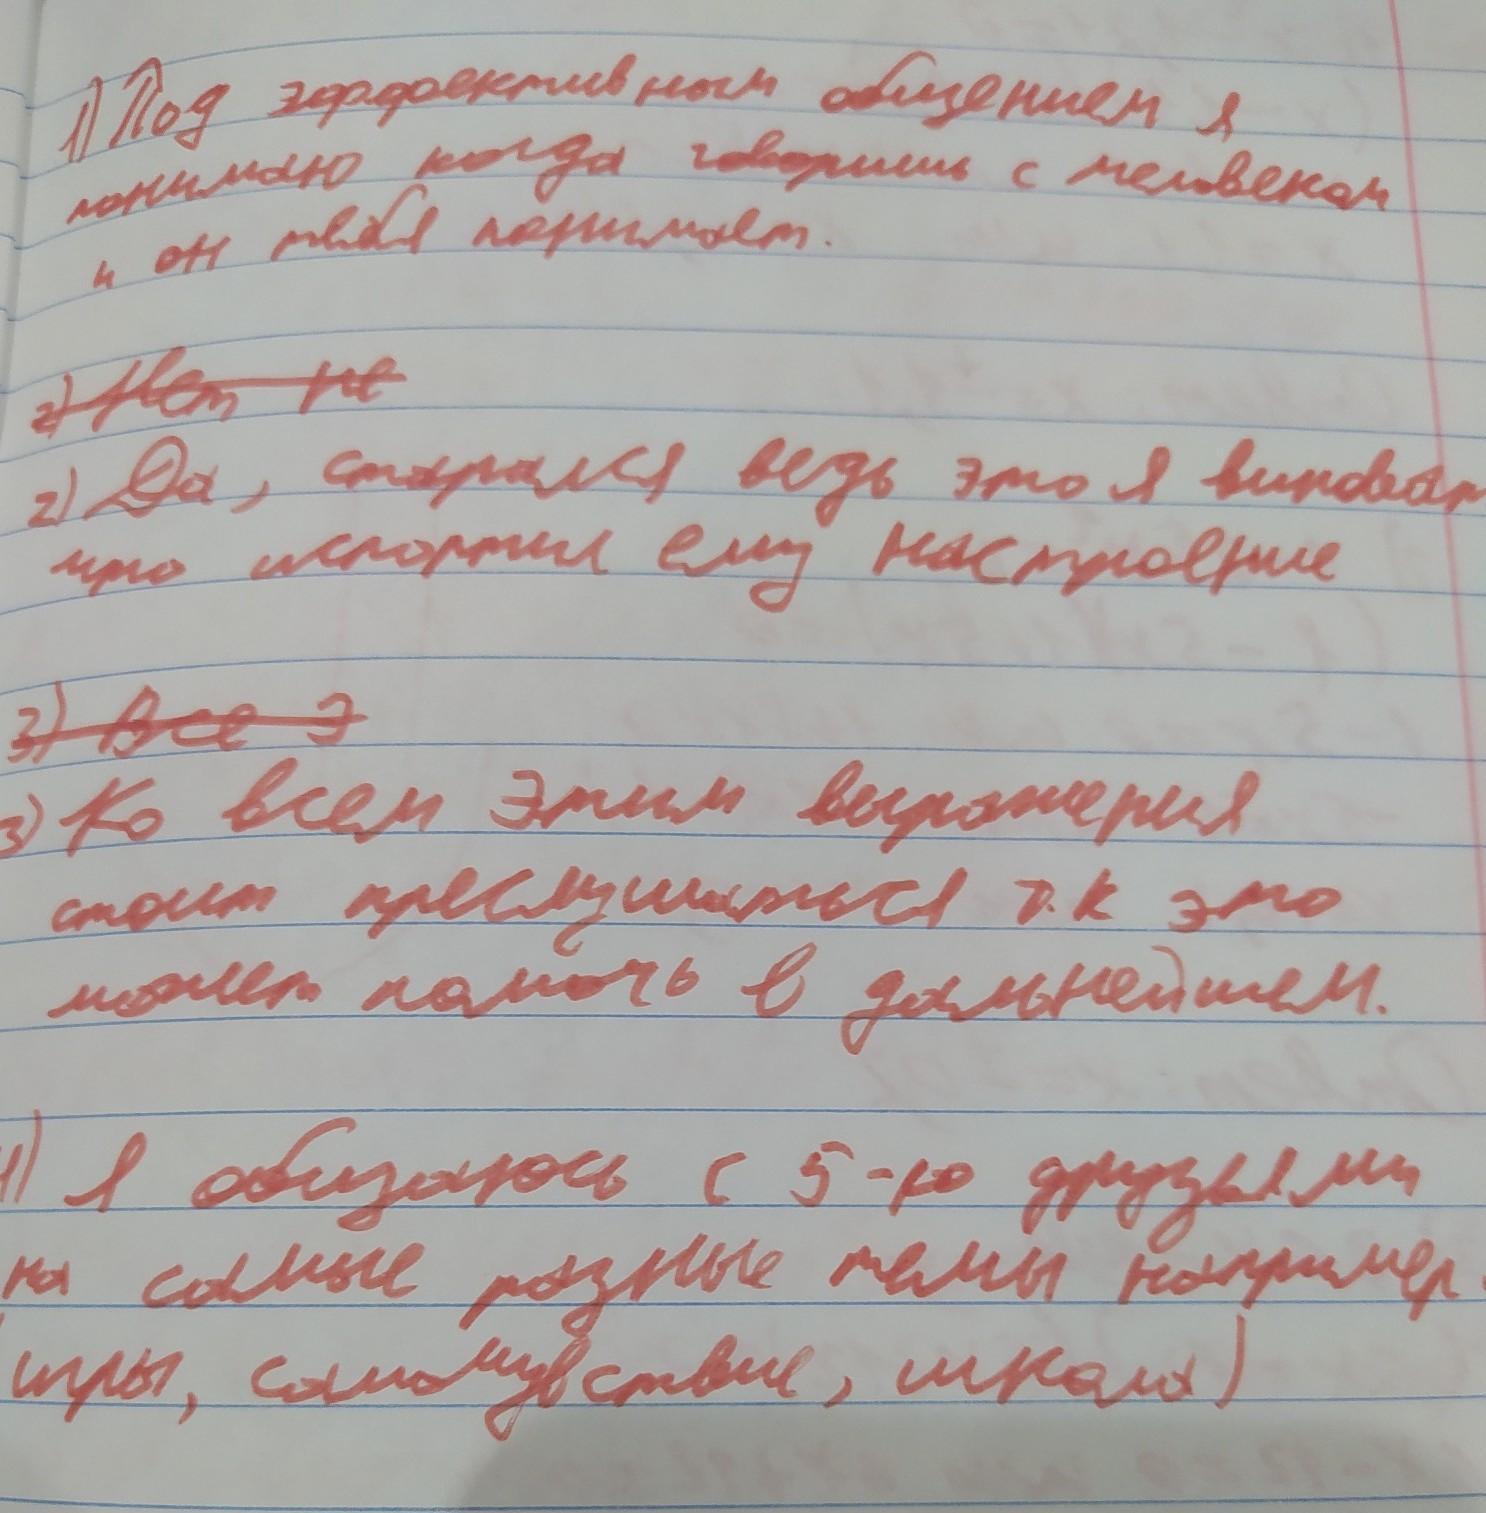 1) Под эффективным общением я
понимаю когда говоришь с человеком
и он тебя понимает.
2) Нет не
2) Да, старался ведь это я виноват
что испортил ему настроение
3) Все э
3) Ко всем этим выражения
стоит преслушаться т.к это
может помочь в дальнейшем.
4) Я общаюсь с 5-ю друзьями
на самые разные темы например
(игры, самочувствие, школа)